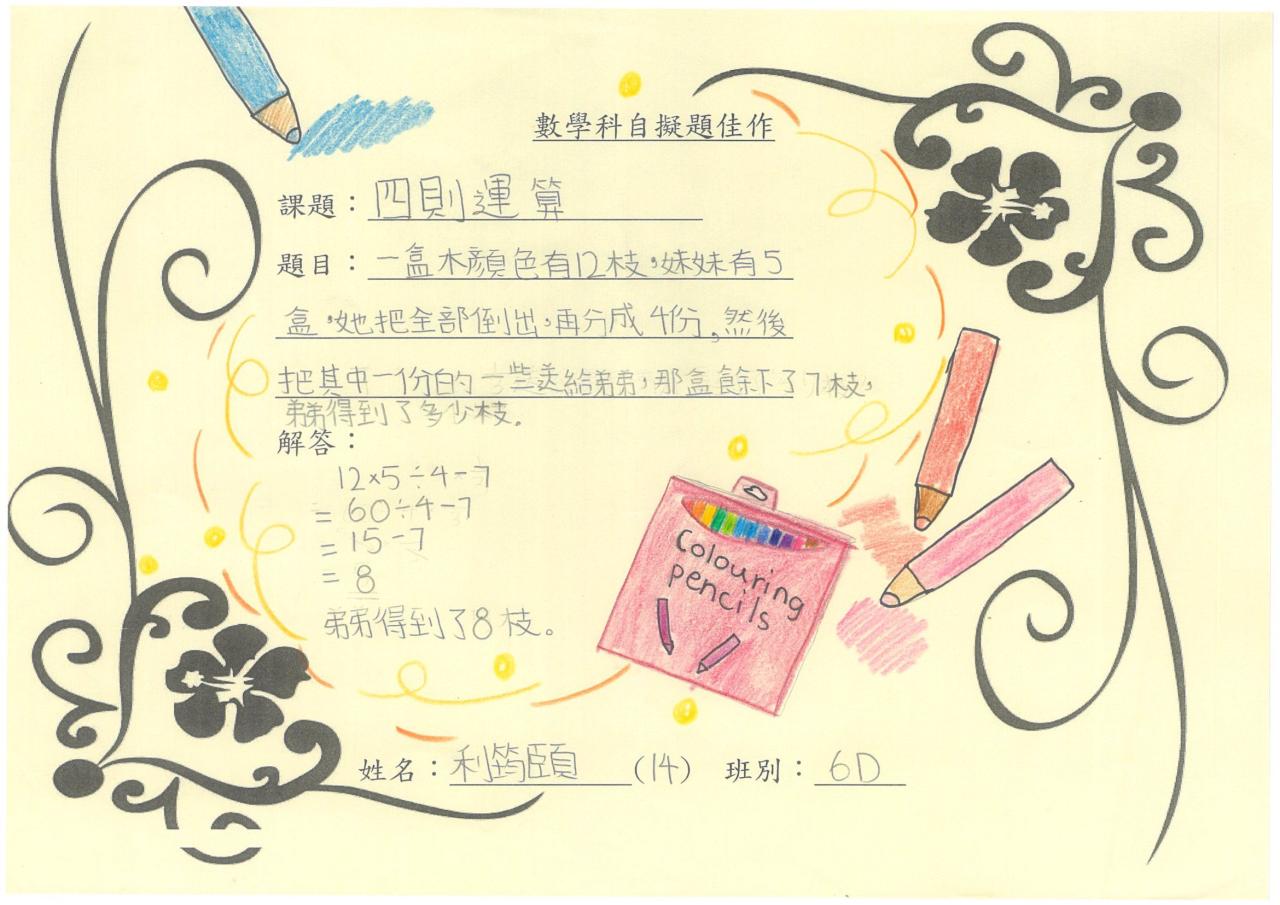 數學科自擬題佳作
課題：四則運算
題目：一盒木顏色有12枝，妹妹有5
盒，她把全部倒出，再分成4份，然後
把其中一份的一些送給弟弟，那盒餘下了7枝，
弟弟得到了多少枝。
解答：
12×5÷4-7
= 60÷4-7
= 15-7
= 8
弟弟得到了8枝。
Colouring
pencils
姓名：利筠頤 (14) 班別：6D